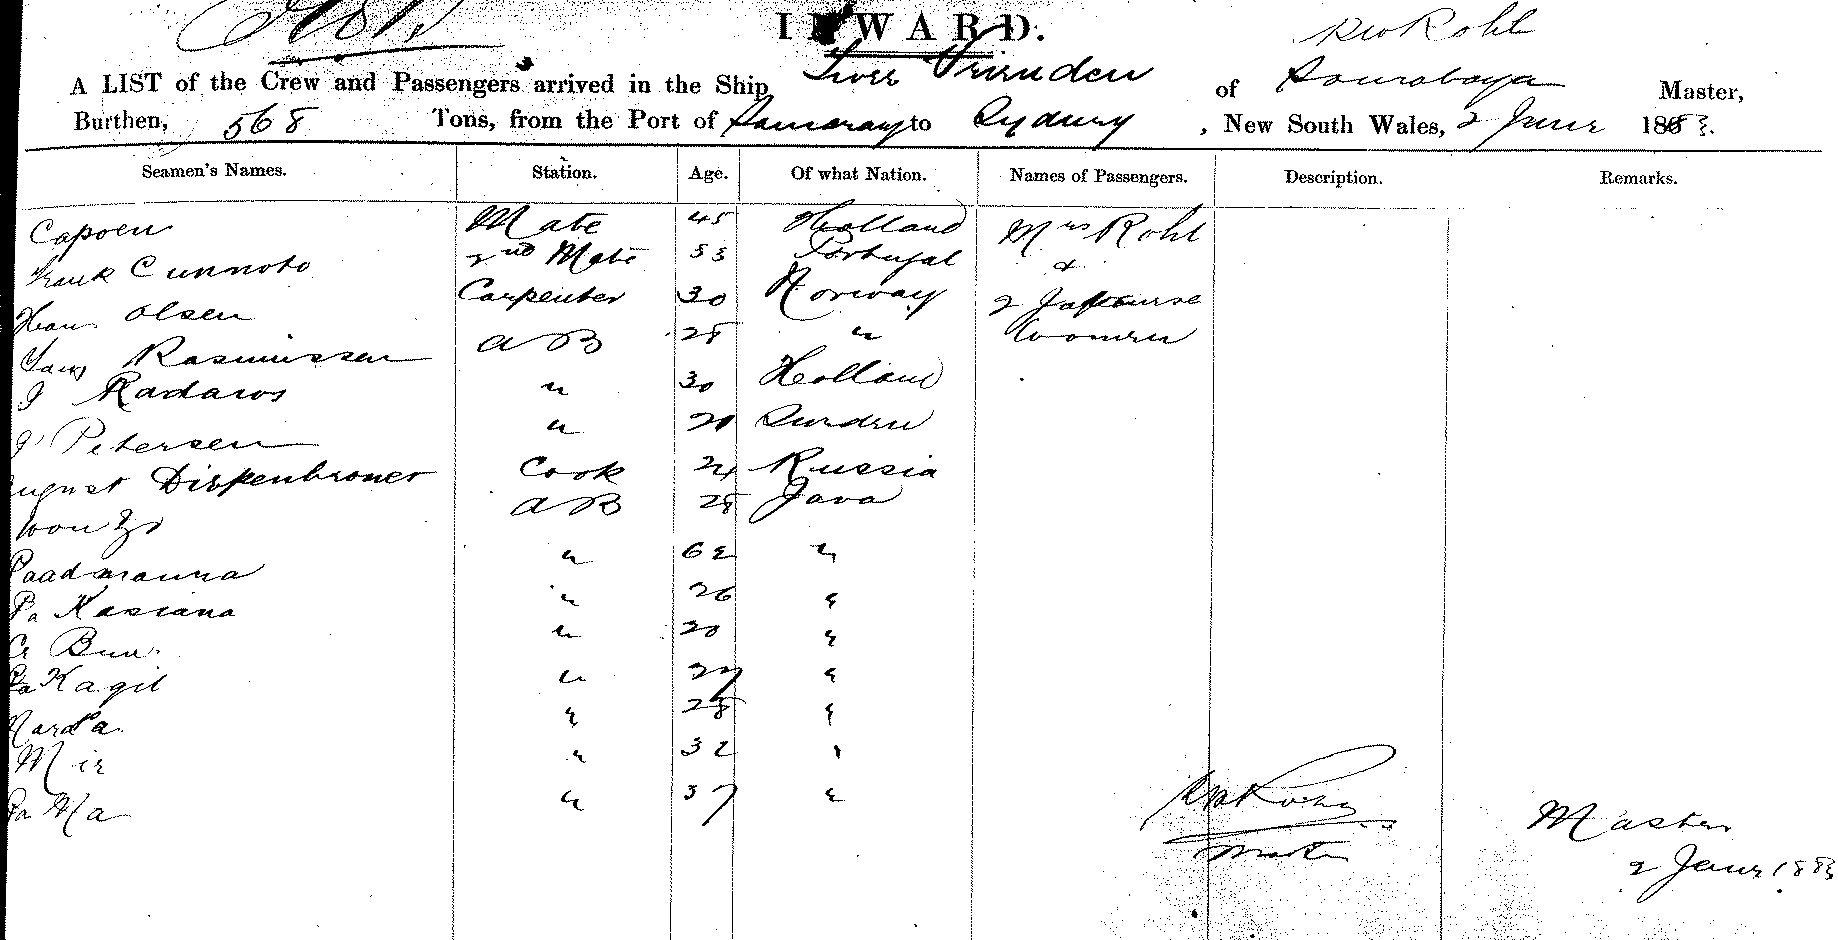 INWARD.
A LIST of the Crew and Passengers arrived in the Ship Twee Vrienden of Sourabaya Rohl Master,
Burthen, 568 Tons, from the Port of Samarang to Sydney, New South Wales, 2 June 1883.
Seamen's Names. Station. Age. Of what Nation. Names of Passengers. Description. Remarks.
Capoen Mate 45 Holland Mrs Rohl
Frank Cunnoto 2nd Mate 53 Portugal &
Hans Olsen Carpenter 30 Norway 2 Japanese
Rasmussen AB 28 " Women
J Radaws " 30 Holland
J Petersen " 20 Sweden
August Dirkenbroner Cook 24 Russia
AB 28 Java
Paadaranna " 62 "
Pa Kasiana " 26 "
Bun " 20 "
Pa Kagil " 27 "
Narda " 28 "
Mir " 32 "
Pa Ma " 37 "
Master
Master
2 June 1883